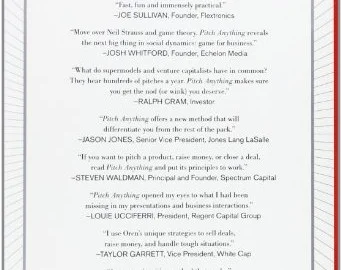 "Fast, fun and immensely practical."
–JOE SULLIVAN, Founder, Flextronics
"Move over Neil Strauss and game theory. Pitch Anything reveals
the next big thing in social dynamics: game for business."
–JOSH WHITFORD, Founder, Echelon Media
"What do supermodels and venture capitalists have in common?
They hear hundreds of pitches a year. Pitch Anything makes sure
you get the nod (or wink) you deserve."
–RALPH CRAM, Investor
"Pitch Anything offers a new method that will
differentiate you from the rest of the pack."
–JASON JONES, Senior Vice President, Jones Lang LaSalle
"If you want to pitch a product, raise money, or close a deal,
read Pitch Anything and put its principles to work."
–STEVEN WALDMAN, Principal and Founder, Spectrum Capital
"Pitch Anything opened my eyes to what I had been
missing in my presentations and business interactions."
–LOUIE UCCIFERRI, President, Regent Capital Group
"I use Oren's unique strategies to sell deals,
raise money, and handle tough situations."
–TAYLOR GARRETT, Vice President, White Cap